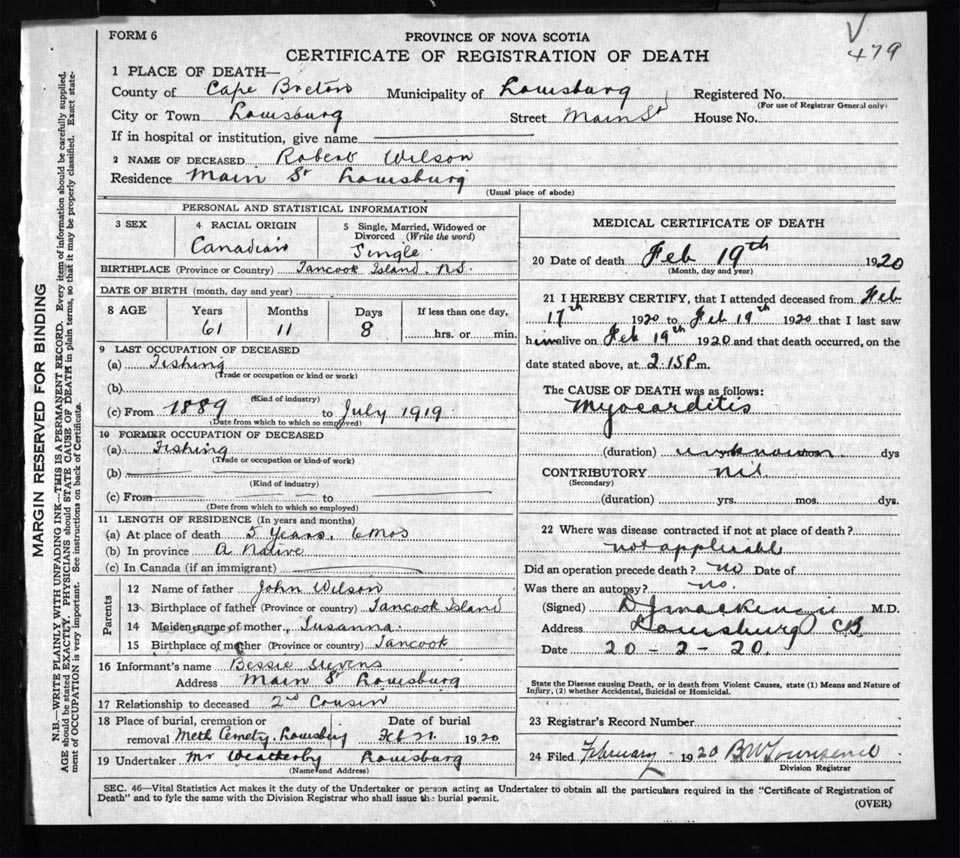 V
479
FORM 6
PROVINCE OF NOVA SCOTIA
CERTIFICATE OF REGISTRATION OF DEATH
1 PLACE OF DEATH—
County of Cape Breton Municipality of Louisburg Registered No.
(For use of Registrar General only)
City or Town Louisburg Street Main St House No.
If in hospital or institution, give name
2 NAME OF DECEASED Robert Wilson
Residence Main St Louisburg
(Usual place of abode)
PERSONAL AND STATISTICAL INFORMATION
3 SEX
4 RACIAL ORIGIN
Canadian
5 Single, Married, Widowed or
Divorced (Write the word)
Single
BIRTHPLACE (Province or Country) Tancook Island. N.S.
DATE OF BIRTH (month, day and year)
8 AGE Years Months Days If less than one day,
61 11 8 hrs. or min.
9 LAST OCCUPATION OF DECEASED
(a) Fishing
(Trade or occupation or kind or work)
(b)
(Kind of industry)
(c) From 1889 to July 1919.
(Date from which to which so employed)
10 FORMER OCCUPATION OF DECEASED
(a) Fishing
(Trade or occupation or kind of work)
(b)
(Kind of industry)
(c) From to
(Date from which to which so employed)
11 LENGTH OF RESIDENCE (In years and months)
(a) At place of death 5 Years, 6 Mos
(b) In province A Native
(c) In Canada (if an immigrant)
Parents
12 Name of father John Wilson
13 Birthplace of father (Province or country) Tancook Island
14 Maiden name of mother, Susanna.
15 Birthplace of mother (Province or country) Tancook
16 Informant's name Bessie Stevens
Address Main St Louisburg
17 Relationship to deceased 2nd Cousin
18 Place of burial, cremation or Date of burial
removal Meth Cemetry. Louisburg Feb 21. 1920
19 Undertaker Mr Weatherby Louisburg
(Name and Address)
MEDICAL CERTIFICATE OF DEATH
20 Date of death Feb 19th 1920
(Month, day and year)
21 I HEREBY CERTIFY, that I attended deceased from Feb
17th 1920 to Feb 19th 1920 that I last saw
him alive on Feb 19th 1920 and that death occurred, on the
date stated above, at 2.15 P. m.
The CAUSE OF DEATH was as follows:
Myocarditis
(duration) unknown dys
CONTRIBUTORY nil
(Secondary)
(duration) yrs. mos. dys.
22 Where was disease contracted if not at place of death?
not applicable
Did an operation precede death? no Date of
Was there an autopsy? no.
(Signed) D J MacKenzie M.D.
Address Louisburg CB
Date 20-2-20.
State the Disease causing Death, or in death from Violent Causes, state (1) Means and Nature of
Injury, (2) whether Accidental, Suicidal or Homicidal.
23 Registrar's Record Number
24 Filed February 1920 B W Townsend
Division Registrar
SEC. 46—Vital Statistics Act makes it the duty of the Undertaker or person acting as Undertaker to obtain all the particulars required in the "Certificate of Registration of
Death" and to fyle the same with the Division Registrar who shall issue the burial permit.
(OVER)
MARGIN RESERVED FOR BINDING
N.B.—WRITE PLAINLY WITH UNFADING INK—THIS IS A PERMANENT RECORD. Every item of information should be carefully supplied.
AGE should be stated EXACTLY. PHYSICIANS should STATE CAUSE OF DEATH in plain terms, so that it may be properly classified. Exact state-
ment of OCCUPATION is very important. See instructions on back of Certificate.